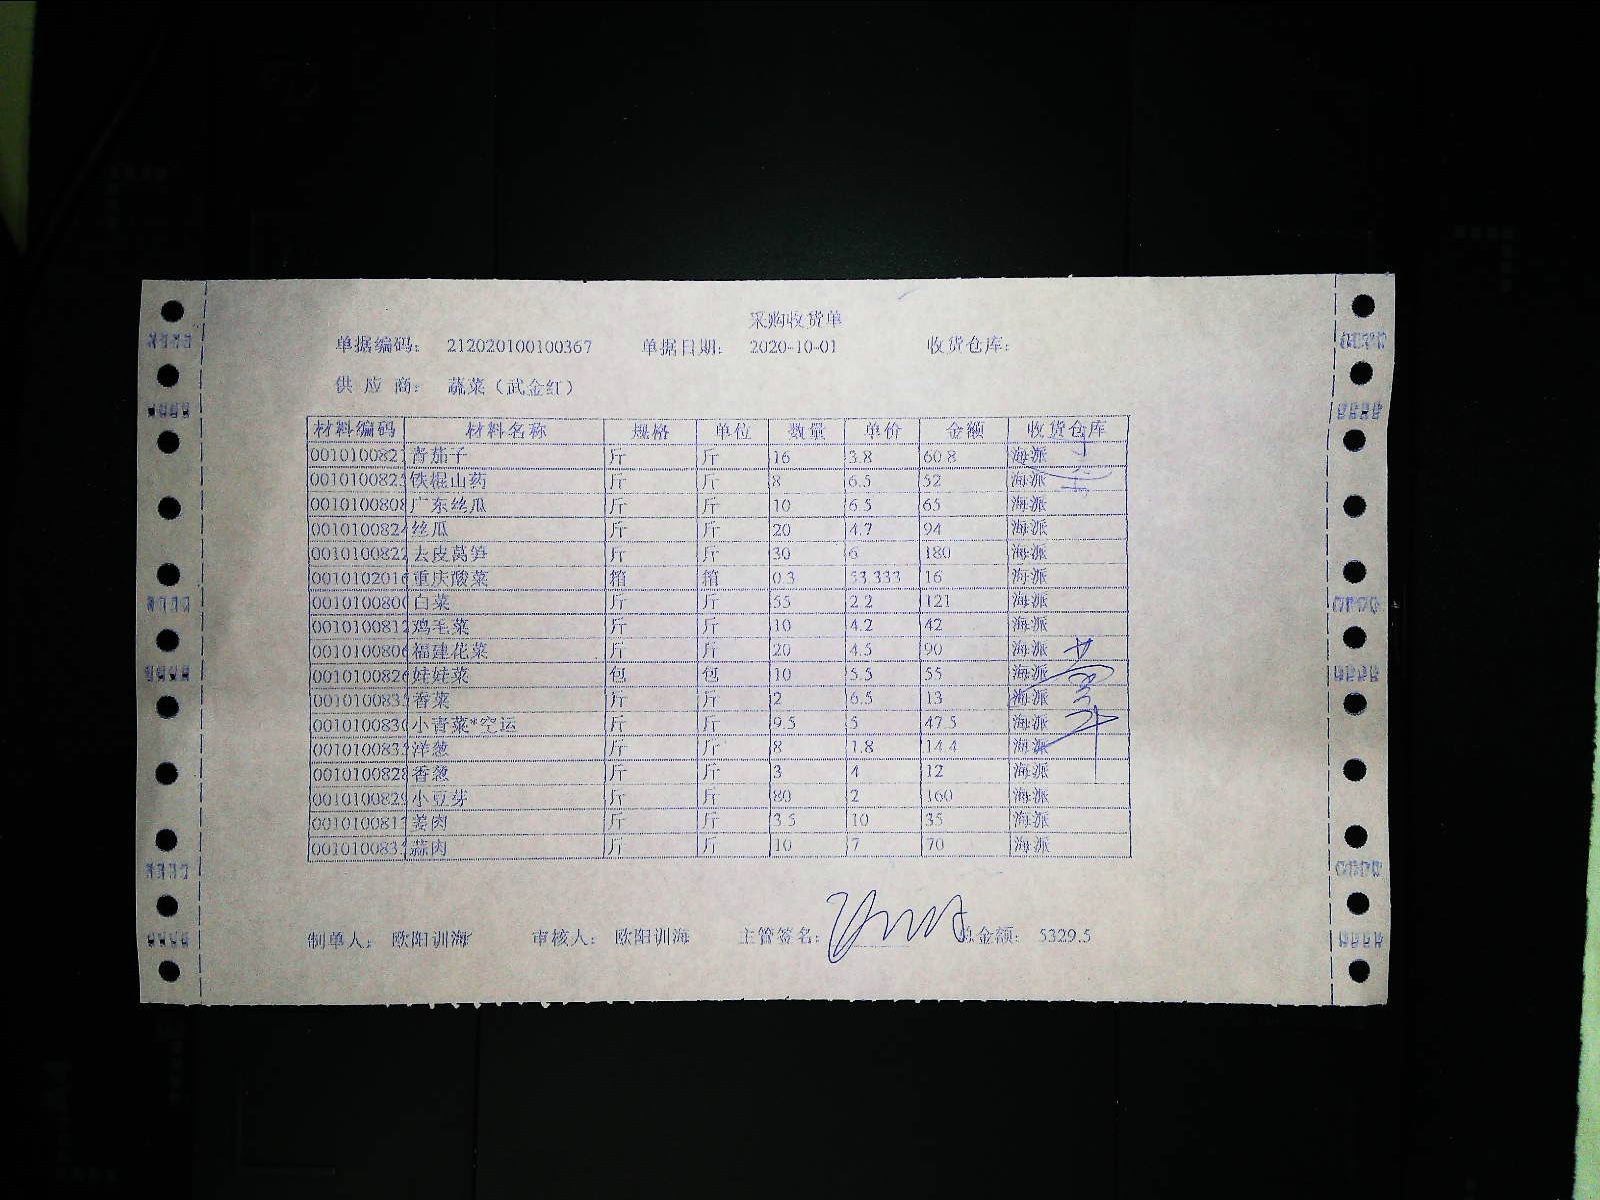 采购收货单
单据编码: 212020100100367 单据日期: 2020-10-01 收货仓库:
供 应 商: 蔬菜（武金红）
材料编码 材料名称 规格 单位 数量 单价 金额 收货仓库
001010082 青茄子 斤 斤 16 3.8 60.8 海派
001010082 铁棍山药 斤 斤 8 6.5 52 海派
001010080 广东丝瓜 斤 斤 10 6.5 65 海派
001010082 丝瓜 斤 斤 20 4.7 94 海派
001010082 去皮莴笋 斤 斤 30 6 180 海派
001010201 重庆酸菜 箱 箱 0.3 53.333 16 海派
001010080 白菜 斤 斤 55 2.2 121 海派
001010081 鸡毛菜 斤 斤 10 4.2 42 海派
001010080 福建花菜 斤 斤 20 4.5 90 海派
001010082 娃娃菜 包 包 10 5.5 55 海派
001010083 香菜 斤 斤 2 6.5 13 海派
001010083 小青菜*空运 斤 斤 9.5 5 47.5 海派
001010083 洋葱 斤 斤 8 1.8 14.4 海派
001010082 香葱 斤 斤 3 4 12 海派
001010082 小豆芽 斤 斤 80 2 160 海派
001010081 姜肉 斤 斤 3.5 10 35 海派
001010083 蒜肉 斤 斤 10 7 70 海派
制单人: 欧阳训海 审核人: 欧阳训海 主管签名: 总金额: 5329.5